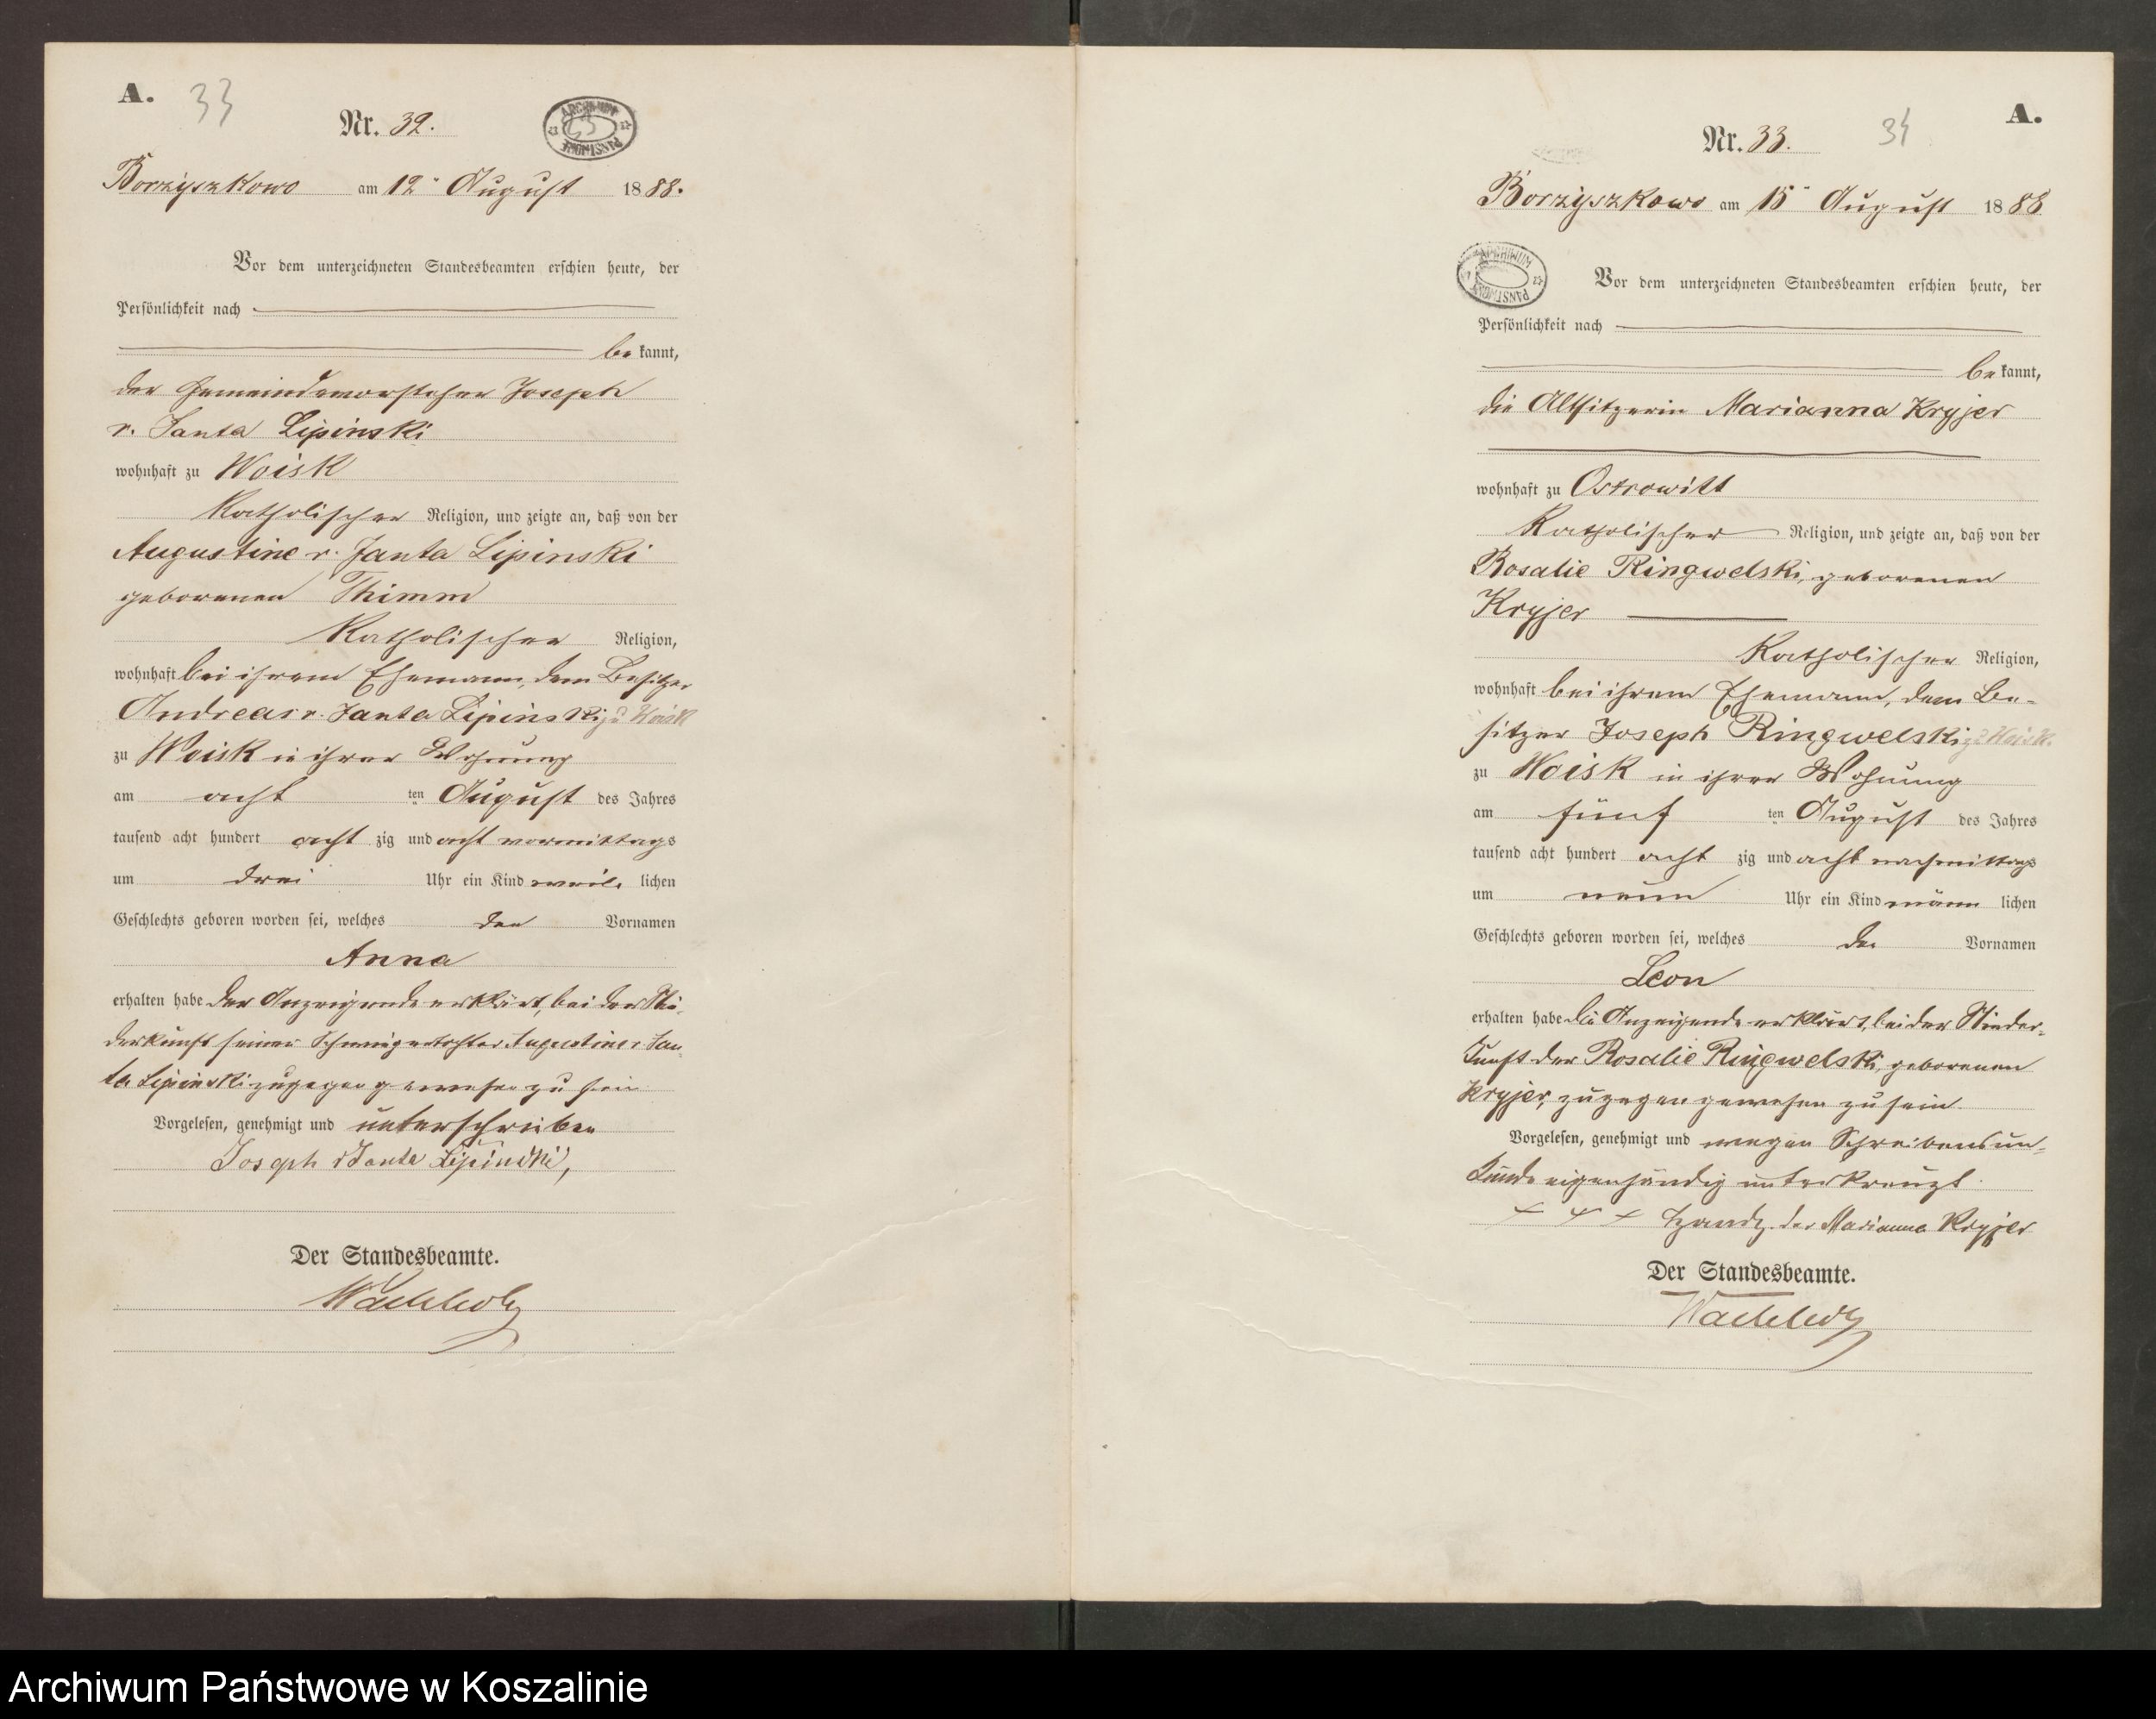 A. 33
Nr. 32.
ARCHIWUM PAŃSTWOWE
Borzyszkowo am 12ⁿ August 1888.
Vor dem unterzeichneten Standesbeamten erschien heute, der
Persönlichkeit nach
be kannt,
der Gemeindevorsteher Joseph
v. Janta Lipinski
wohnhaft zu Woisk
Katholischer Religion, und zeigte an, daß von der
Augustine v. Janta Lipinski
geborenen Thimm
Katholischer Religion,
wohnhaft bei ihrem Ehemann, dem Besitzer
Andreas v. Janta Lipinski zu Woisk
zu Woisk in ihrer Wohnung
am acht ten August des Jahres
tausend acht hundert acht zig und acht vormittags
um drei Uhr ein Kind weib lichen
Geschlechts geboren worden sei, welches den Vornamen
Anna
erhalten habe der Anzeigende erklärt, bei der Nie-
derkunft seiner Schwiegertochter Augustine v Jan-
ta Lipinski zugegen gewesen zu sein
Vorgelesen, genehmigt und unterschrieben
Joseph v Janta Lipinski,
Der Standesbeamte.
A.
Nr. 33. 34
Borzyszkowo am 15ⁿ August 1888
ARCHIWUM PAŃSTWOWE
Vor dem unterzeichneten Standesbeamten erschien heute, der
Persönlichkeit nach
be kannt,
die Altsitzerin Marianna Kryjer
wohnhaft zu Ostrowitt
Katholischer Religion, und zeigte an, daß von der
Rosalie Ringwelski, geborenen
Kryjer
Katholischer Religion,
wohnhaft bei ihrem Ehemann, dem Be-
sitzer Joseph Ringwelski zu Woisk.
zu Woisk in ihrer Wohnung
am fünf ten August des Jahres
tausend acht hundert acht zig und acht nachmittags
um neun Uhr ein Kind männ lichen
Geschlechts geboren worden sei, welches den Vornamen
Leon
erhalten habe die Anzeigende erklärt, bei der Nieder-
kunft der Rosalie Ringwelski, geborenen
Kryjer, zugegen gewesen zu sein.
Vorgelesen, genehmigt und wegen Schreibensun-
kunde eigenhändig unterkreuzt.
+ + + Handz. der Marianna Kryjer
Der Standesbeamte.
Archiwum Państwowe w Koszalinie